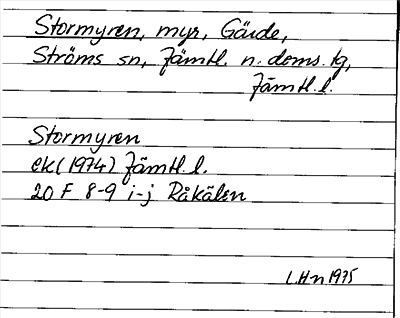 Stormyren, myr, Gärde,
Ströms sn, Jämtl. n. doms. tg,
Jämtl. l.
Stormyren
ek (1974) Jämtl. l.
20 F 8-9 i-j Råkälen
L.H-n 1975